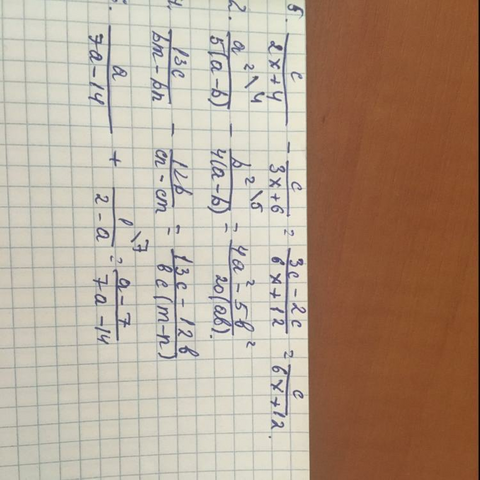 6. c/(2x+4) - c/(3x+6) = (3c-2c)/(6x+12) = c/(6x+12).
2. a² \4/(5(a-b)) - b² \5/(4(a-b)) = (4a²-5b²)/(20(ab)).
13c/(bm-bn) - 12b/(cn-cm) = (13c-12b)/(bc(m-n))
a/(7a-14) + 1 \7/(2-a) = (a-7)/(7a-14)